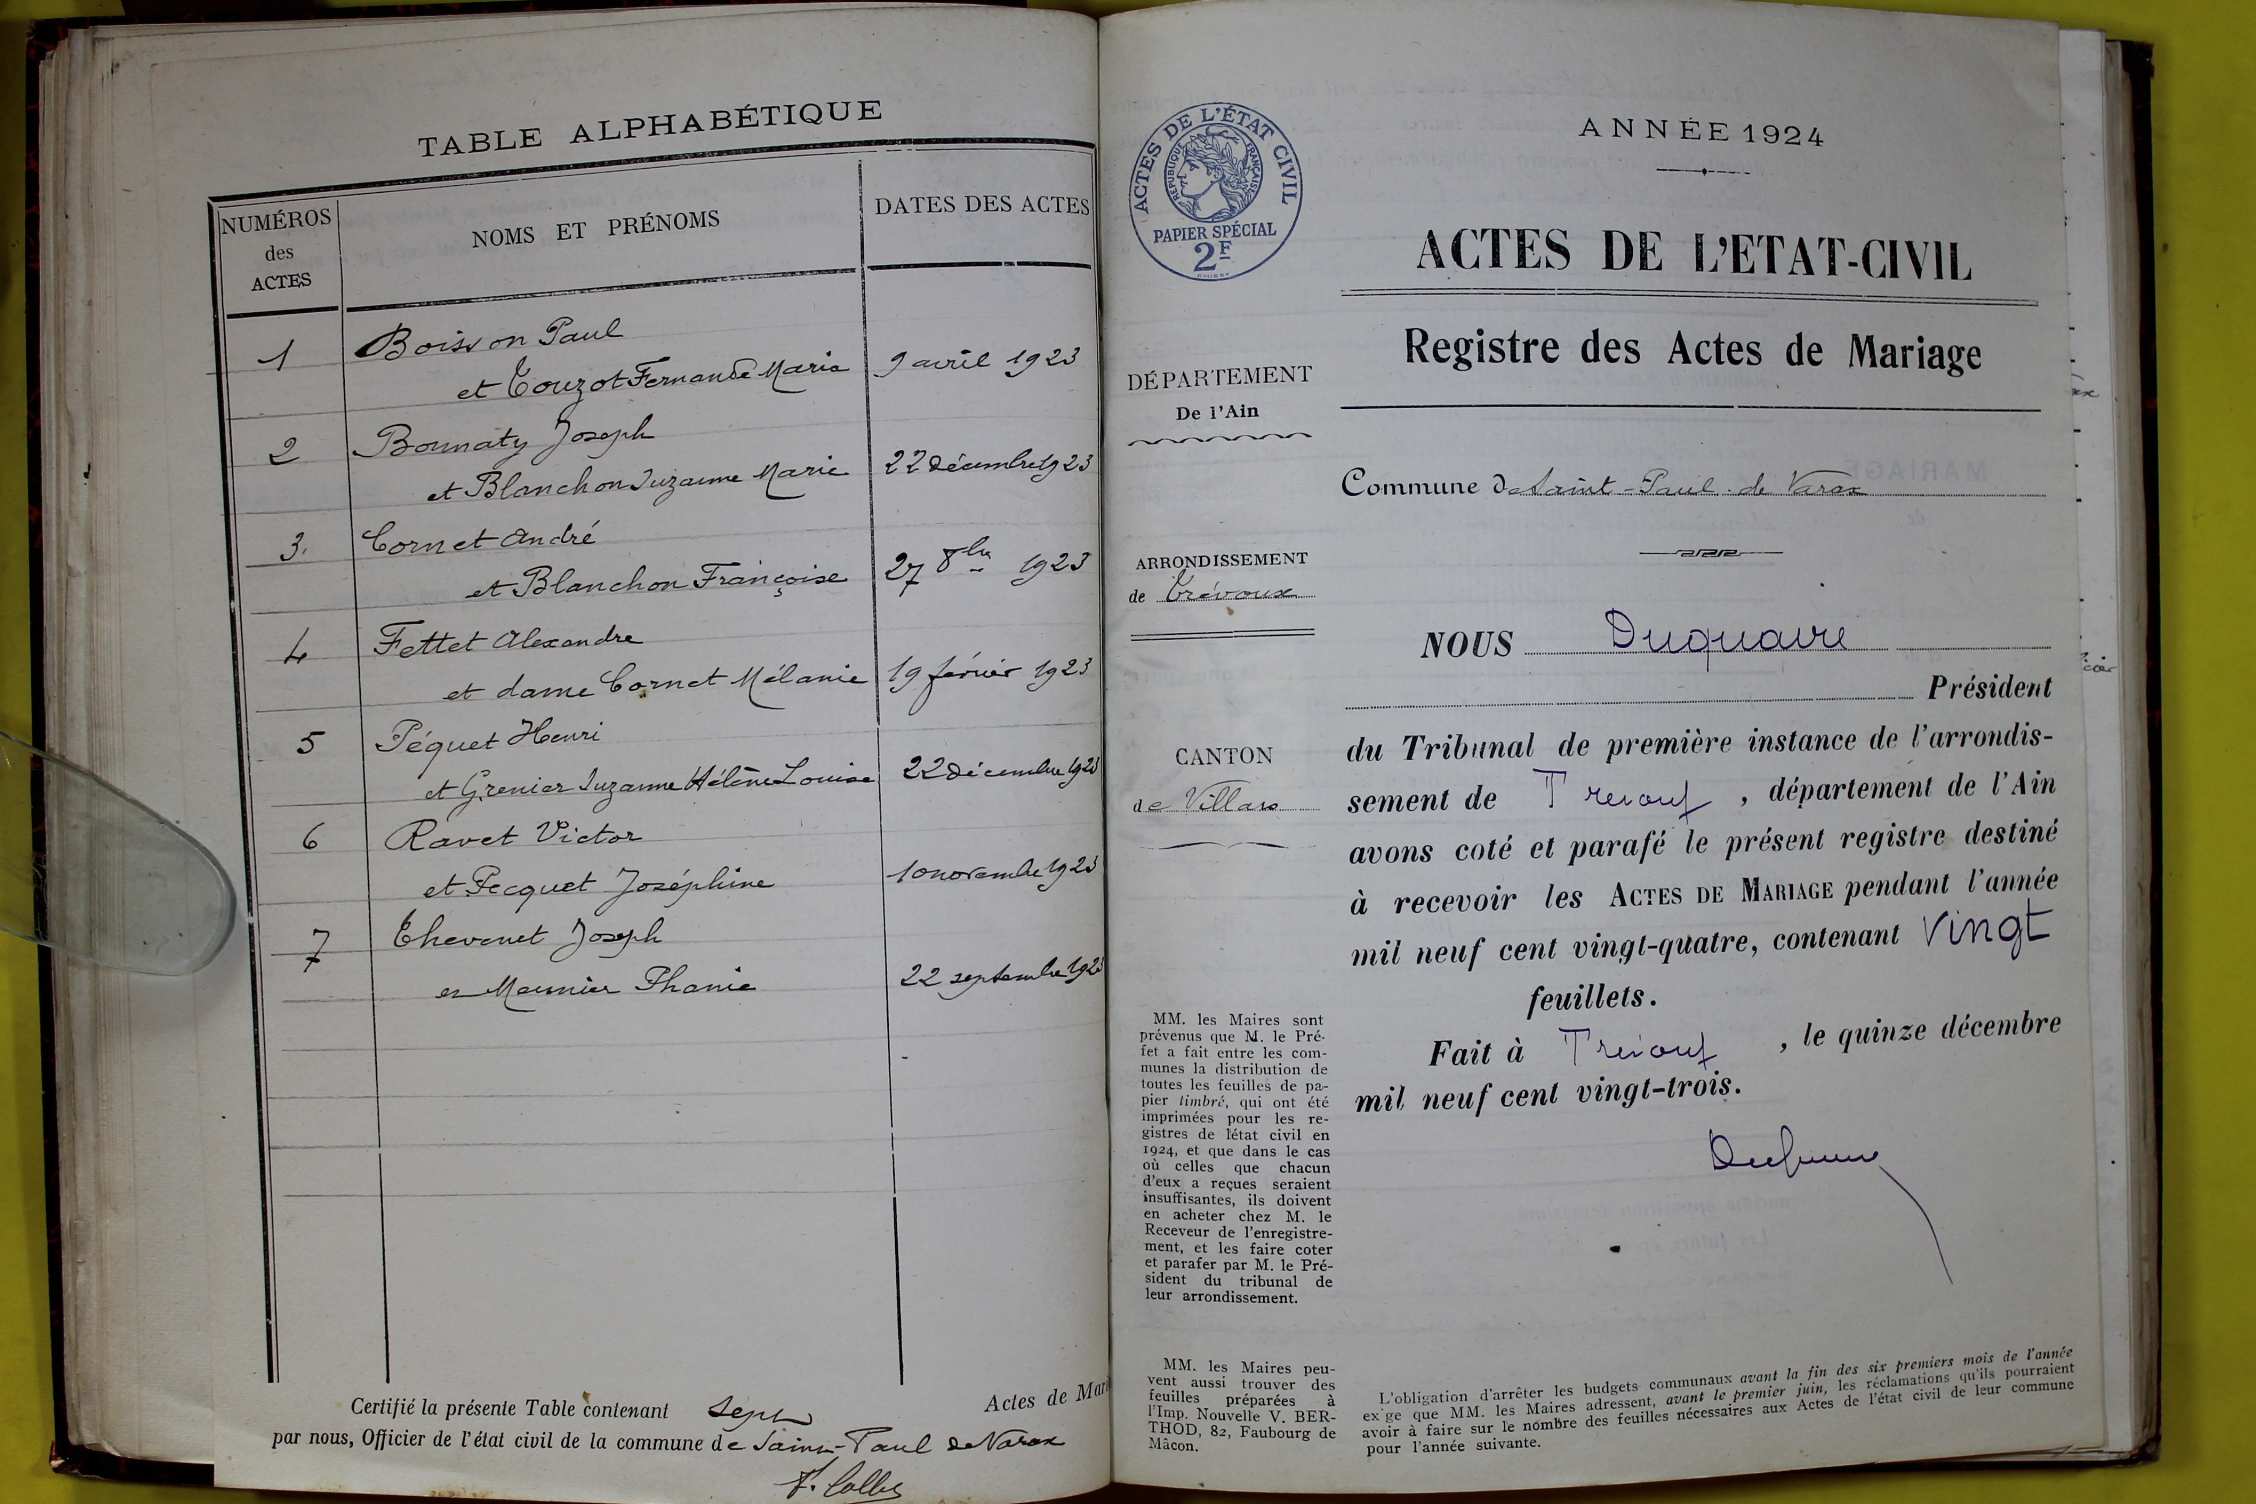 TABLE ALPHABÉTIQUE
NUMÉROS
des
ACTES
NOMS ET PRÉNOMS
DATES DES ACTES
1 Boisson Paul
et Touzot Fernande Marie 9 avril 1923
2 Bonnaty Joseph
et Blanchon Suzanne Marie 22 décembre 1923
3. Cornet André
et Blanchon Françoise 27 8bre 1923
4 Fettet Alexandre
et dame Cornet Mélanie 19 février 1923
5 Péquet Henri
et Grenier Suzanne Hélène Louise 22 décembre 1923
6 Ravet Victor
et Pecquet Joséphine 10 novembre 1923
7 Thevenet Joseph
et Meunier Phanie 22 septembre 1923
Certifié la présente Table contenant sept Actes de Mari
par nous, Officier de l'état civil de la commune de Saint-Paul de Varax
ACTES DE L'ÉTAT CIVIL
RÉPUBLIQUE FRANÇAISE
PAPIER SPÉCIAL
2F
DÉPARTEMENT
De l'Ain
ARRONDISSEMENT
de Trévoux
CANTON
de Villars
MM. les Maires sont
prévenus que M. le Pré-
fet a fait entre les com-
munes la distribution de
toutes les feuilles de pa-
pier timbré, qui ont été
imprimées pour les re-
gistres de l'état civil en
1924, et que dans le cas
où celles que chacun
d'eux a reçues seraient
insuffisantes, ils doivent
en acheter chez M. le
Receveur de l'enregistre-
ment, et les faire coter
et parafer par M. le Pré-
sident du tribunal de
leur arrondissement.
MM. les Maires peu-
vent aussi trouver des
feuilles préparées à
l'Imp. Nouvelle V. BER-
THOD, 82, Faubourg de
Mâcon.
ANNÉE 1924
ACTES DE L'ETAT-CIVIL
Registre des Actes de Mariage
Commune de Saint-Paul-de Varax
NOUS Duquaire
Président
du Tribunal de première instance de l'arrondis-
sement de Trevoux, département de l'Ain
avons coté et parafé le présent registre destiné
à recevoir les ACTES DE MARIAGE pendant l'année
mil neuf cent vingt-quatre, contenant vingt
feuillets.
Fait à Trevoux, le quinze décembre
mil neuf cent vingt-trois.
L'obligation d'arrêter les budgets communaux avant la fin des six premiers mois de l'année
exige que MM. les Maires adressent, avant le premier juin, les réclamations qu'ils pourraient
avoir à faire sur le nombre des feuilles nécessaires aux Actes de l'état civil de leur commune
pour l'année suivante.